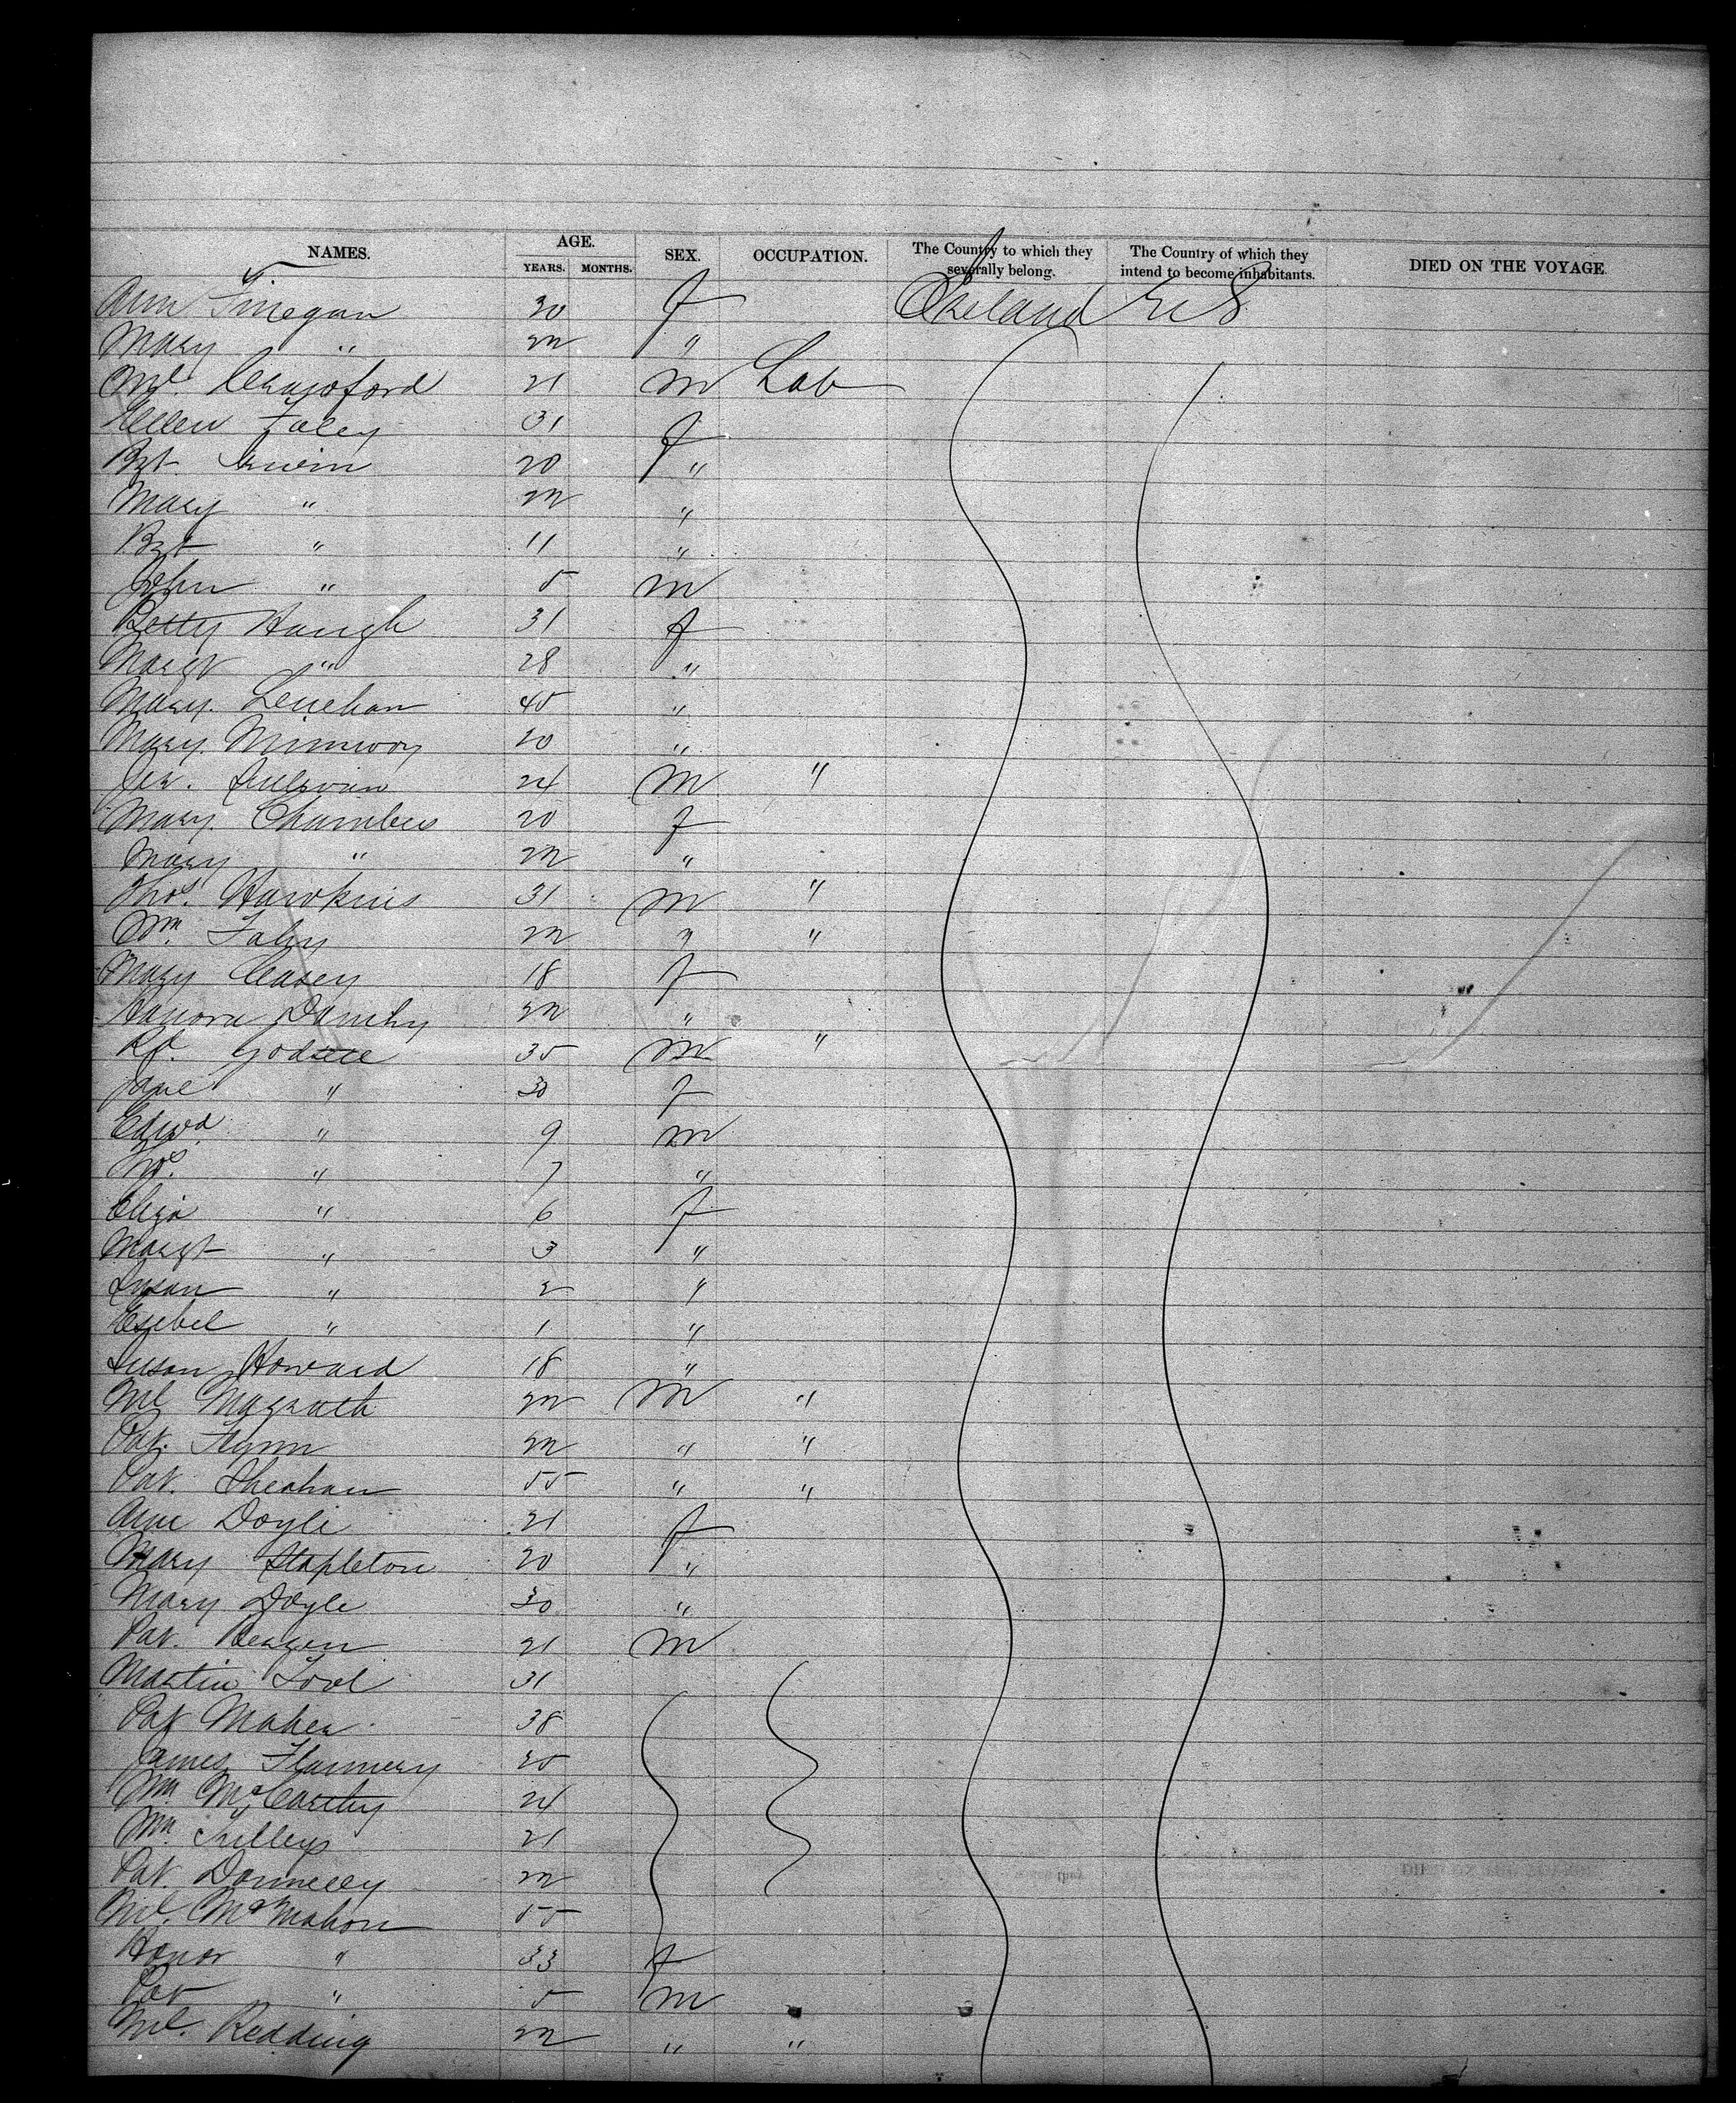 NAMES. AGE. YEARS. MONTHS. SEX. OCCUPATION. The Country to which they severally belong. The Country of which they intend to become inhabitants. DIED ON THE VOYAGE.
Ann Finegan 30 f Ireland U S
Mary " 22 "
Ml. Crawford 21 m Lab
Ellen Foley 31 f
Bgt. Irwin 20 "
Mary " 22 "
Bgt " 11 "
John " 5 m
Betty Haugh 31 f
Margt " 28 "
Mary. Lenehan 45 "
Mary. 20 "
Jer. Sullivan 24 m "
Mary. Chambers 20 f
Mary " 22 "
Thos. Hawkins 31 m "
Wm. Fahy 22 " "
Mary Casey 18 f
Hanora 22 "
35 m "
Jane " 30 f
Edwd. " 9 m
" 7 "
Eliza " 6 f
Margt " 3 "
Susan " 2 "
Esebel " 1 "
Susan Howard 18 "
Ml Magrath 22 m "
Pat. Flynn 22 " "
Pat. Sheahan 55 " "
Ann Doyle 21 f
Mary Stapleton 20 "
Mary Doyle 30 "
Pat. 21 m
Martin Tool 31
Pat Maher 38
James Flannery 25
Wm. McCarthy 24
Wm. 21
Pat. Donnelly 22
Ml. McMahon 55
Honor " 33 f
Pat " 5 m
Ml. Redding 22 " "